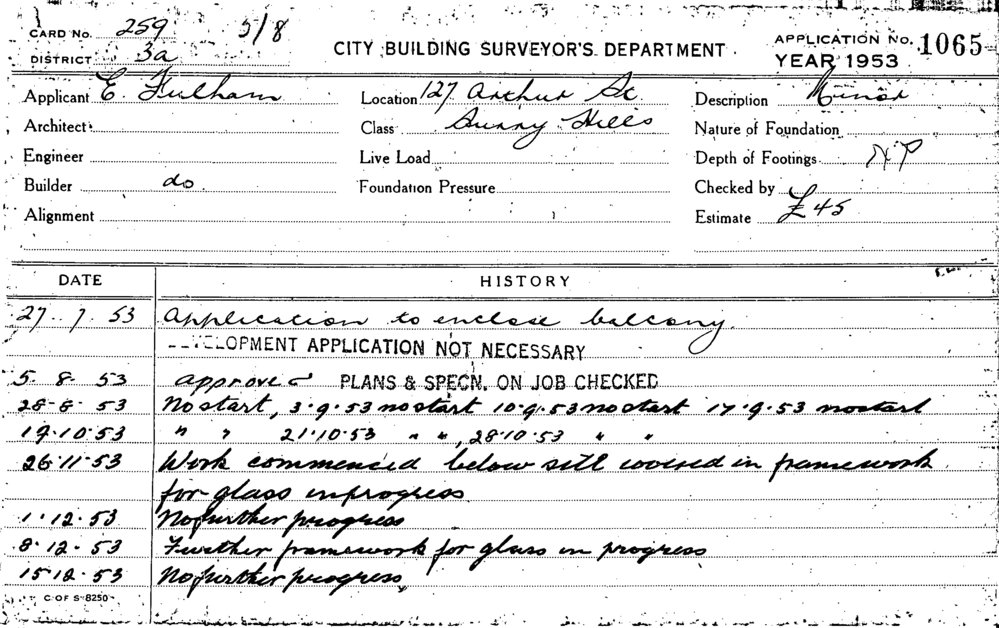 CARD No. 259 5/8
DISTRICT 3a
CITY BUILDING SURVEYOR'S DEPARTMENT
APPLICATION No. 1065
YEAR 1953
Applicant E. Fulham
Location 127 Arthur St
Description Minor
Architect
Class Surry Hills
Nature of Foundation
Engineer
Live Load
Depth of Footings NP
Builder do
Foundation Pressure
Checked by
Alignment
Estimate £45
DATE HISTORY
27.7.53 Application to enclose balcony.
DEVELOPMENT APPLICATION NOT NECESSARY
5.8.53 Approved PLANS & SPECN. ON JOB CHECKED
28-8.53 No start, 3.9.53 no start 10.9.53 no start 17.9.53 no start
19.10.53 " " 21.10.53 " ", 28.10.53 " "
26.11.53 Work commenced below sill covered in framework
for glass in progress
1.12.53 No further progress
8.12.53 Further framework for glass in progress
15.12.53 No further progress,
C OF S 8250